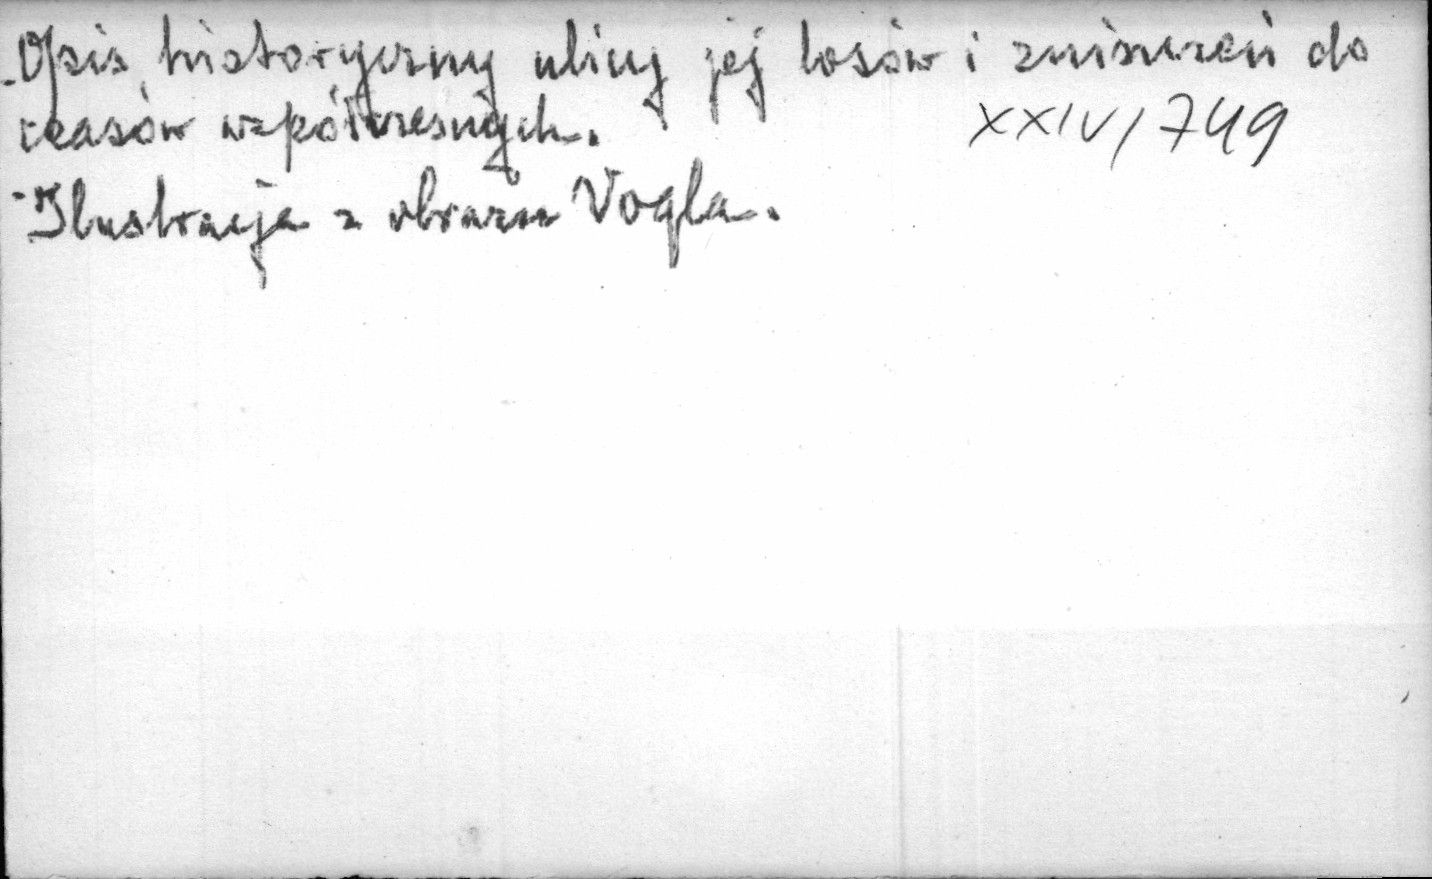 -Opis historyczny ulicy jej losów i zniszczeń do
czasów współczesnych. XXIV/749
-Ilustracja z obrazu Vogla.